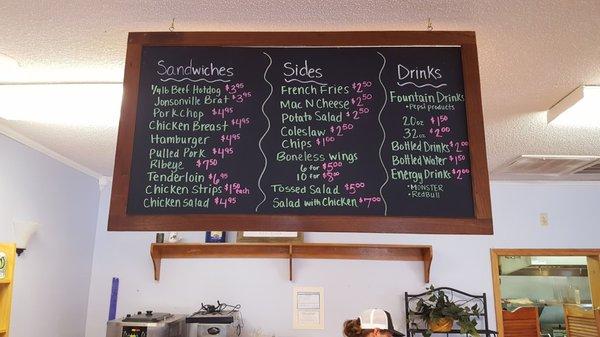 Sandwiches
1/4lb Beef Hotdog $3.95
Jonsonville Brat $3.95
Pork Chop $4.95
Chicken Breast $4.95
Hamburger $4.95
Pulled Pork $4.95
Ribeye $7.50
Tenderloin $6.95
Chicken Strips $1.50 each
Chicken Salad $4.95
Sides
French Fries $2.50
Mac N Cheese $2.50
Potato Salad $2.50
Coleslaw $2.50
Chips $1.00
Boneless Wings
6 for $5.00
10 for $8.00
Tossed Salad $5.00
Salad with Chicken $7.00
Drinks
Fountain Drinks
• Pepsi products
20oz $1.50
32oz $2.00
Bottled Drinks $2.00
Bottled Water $1.50
Energy Drinks $2.00
• Monster
• RedBull